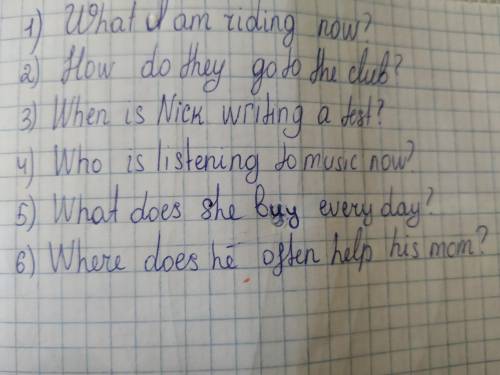 1) What I am riding now?
2) How do they go to the club?
3) When is Nick writing a test?
4) Who is listening to music now?
5) What does she buy every day?
6) Where does he often help his mom?